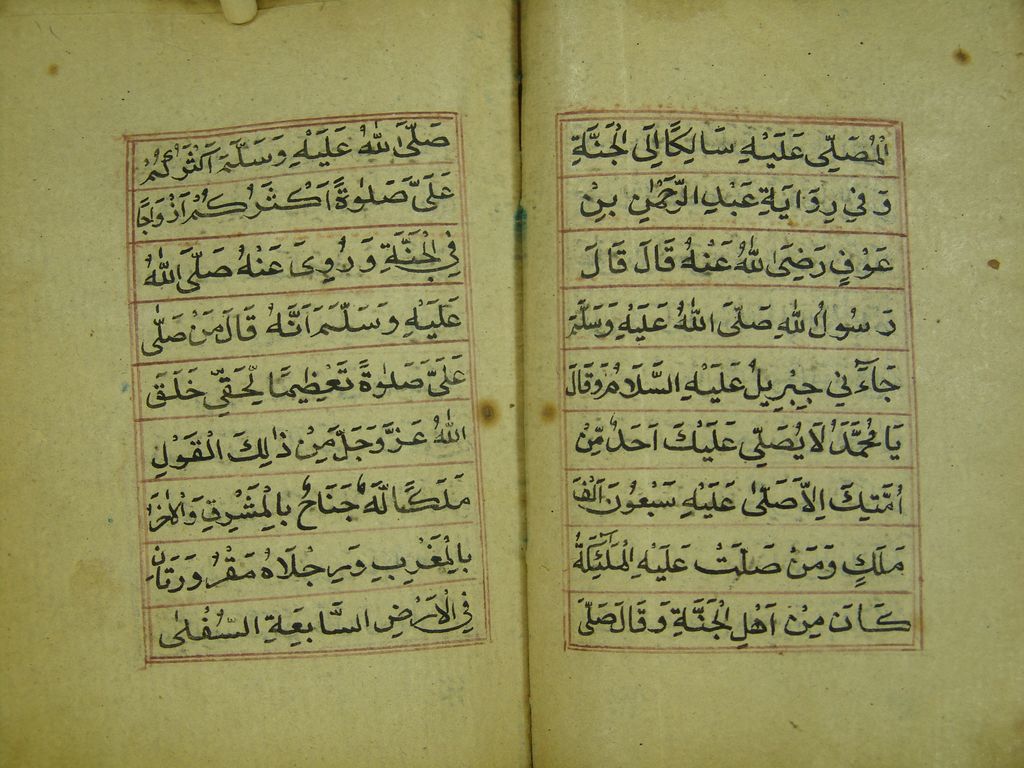 الْمُصَلِّى عَلَيْهِ سَالِكًا اِلَى الْجَنَّةِ
وَفِي رِوَايَةِ عَبْدِ الرَّحْمٰنِ بِنْ
عَوْفٍ رَضِىَ اللّٰهُ عَنْهُ قَالَ قَالَ
رَسُولُ اللّٰهِ صَلَّى اللّٰهُ عَلَيْهِ وَسَلَّمَ
جَآءَنِي جِبْرِيلُ عَلَيْهِ السَّلَامُ وَقَالَ
يَا مُحَمَّدُ لَا يُصَلِّي عَلَيْكَ اَحَدٌ مِّنْ
اُمَّتِكَ اِلَّا صَلّٰى عَلَيْهِ سَبْعُونَ اَلْفَ
مَلَكٍ وَمَنْ صَلَّتْ عَلَيْهِ الْمَلٰئِكَةُ
كَانَ مِنْ اَهْلِ الْجَنَّةِ وَقَالَ صَلَّى
صَلَّى اللّٰهُ عَلَيْهِ وَسَلَّمَ اَكْثَرُكُمْ
عَلَىَّ صَلٰوةً اَكْثَرُكُمْ اَزْوَاجًا
فِي الْجَنَّةِ وَرُوِىَ عَنْهُ صَلَّى اللّٰهُ
عَلَيْهِ وَسَلَّمَ اَنَّهُ قَالَ مَنْ صَلّٰى
عَلَىَّ صَلٰوةً تَعْظِيمًا لِحَقِّي خَلَقَ
اللّٰهُ عَزَّ وَجَلَّ مِنْ ذٰلِكَ الْقَوْلِ
مَلَكًا لَهُ جَنَاحٌ بِالْمَشْرِقِ وَالْاٰخَرُ
بِالْمَغْرِبِ وَرِجْلَاهُ مَقْرُورَتَانِ
فِي الْاَرْضِ السَّابِعَةِ السُّفْلٰى